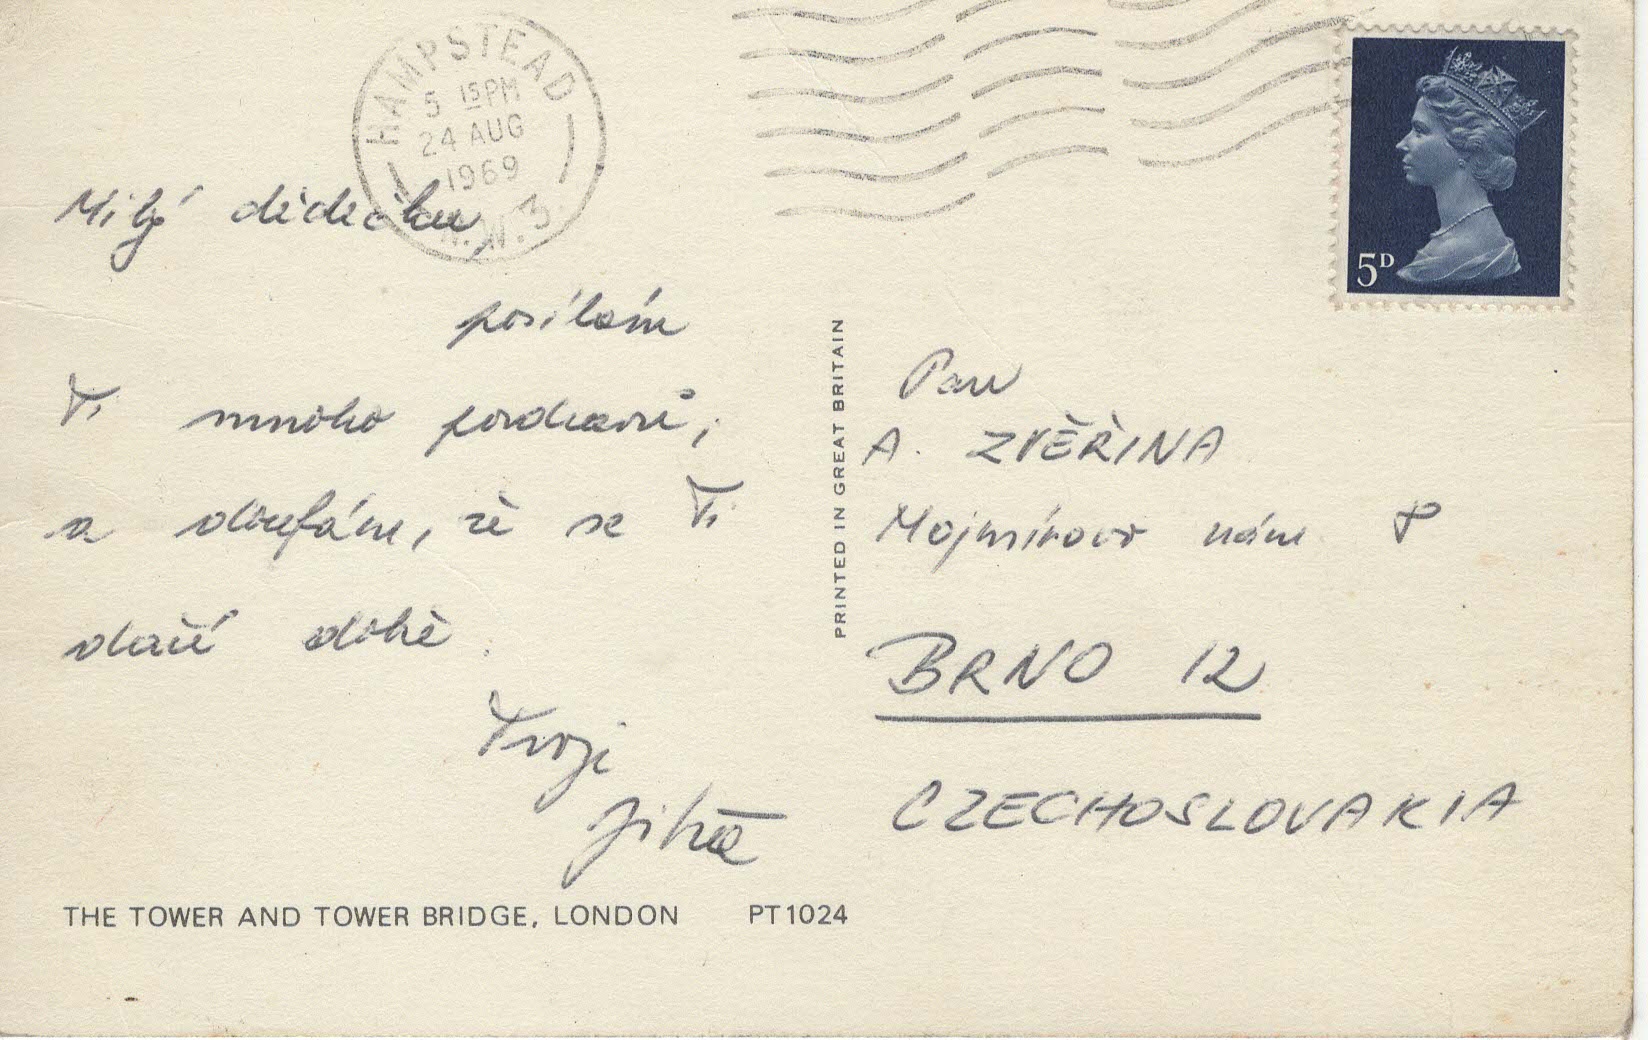 HAMPSTEAD
5 15PM
24 AUG
1969
N.W.3.
5D
Milý dědečku,
posílám
Ti mnoho pozdravů,
a doufám, že se Ti
daří dobře.
Tvoji
PRINTED IN GREAT BRITAIN
Pan
A. ZVĚŘINA
Mojmírovo nám
BRNO 12
CZECHOSLOVAKIA
THE TOWER AND TOWER BRIDGE, LONDON PT1024